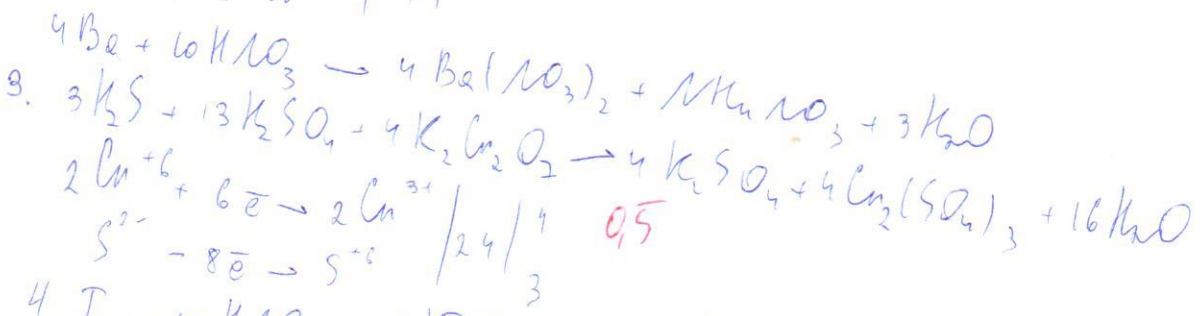 4Ba + 10HNO₃ → 4Ba(NO₃)₂ + NH₄NO₃ + 3H₂O
3. 3H₂S + 13H₂SO₄ + 4K₂Cr₂O₇ → 4K₂SO₄ + 4Cr₂(SO₄)₃ + 16H₂O
2Cr⁺⁶ + 6ē → 2Cr³⁺ | 24 | 4 0,5
S²⁻ - 8ē → S⁺⁶ 3
4